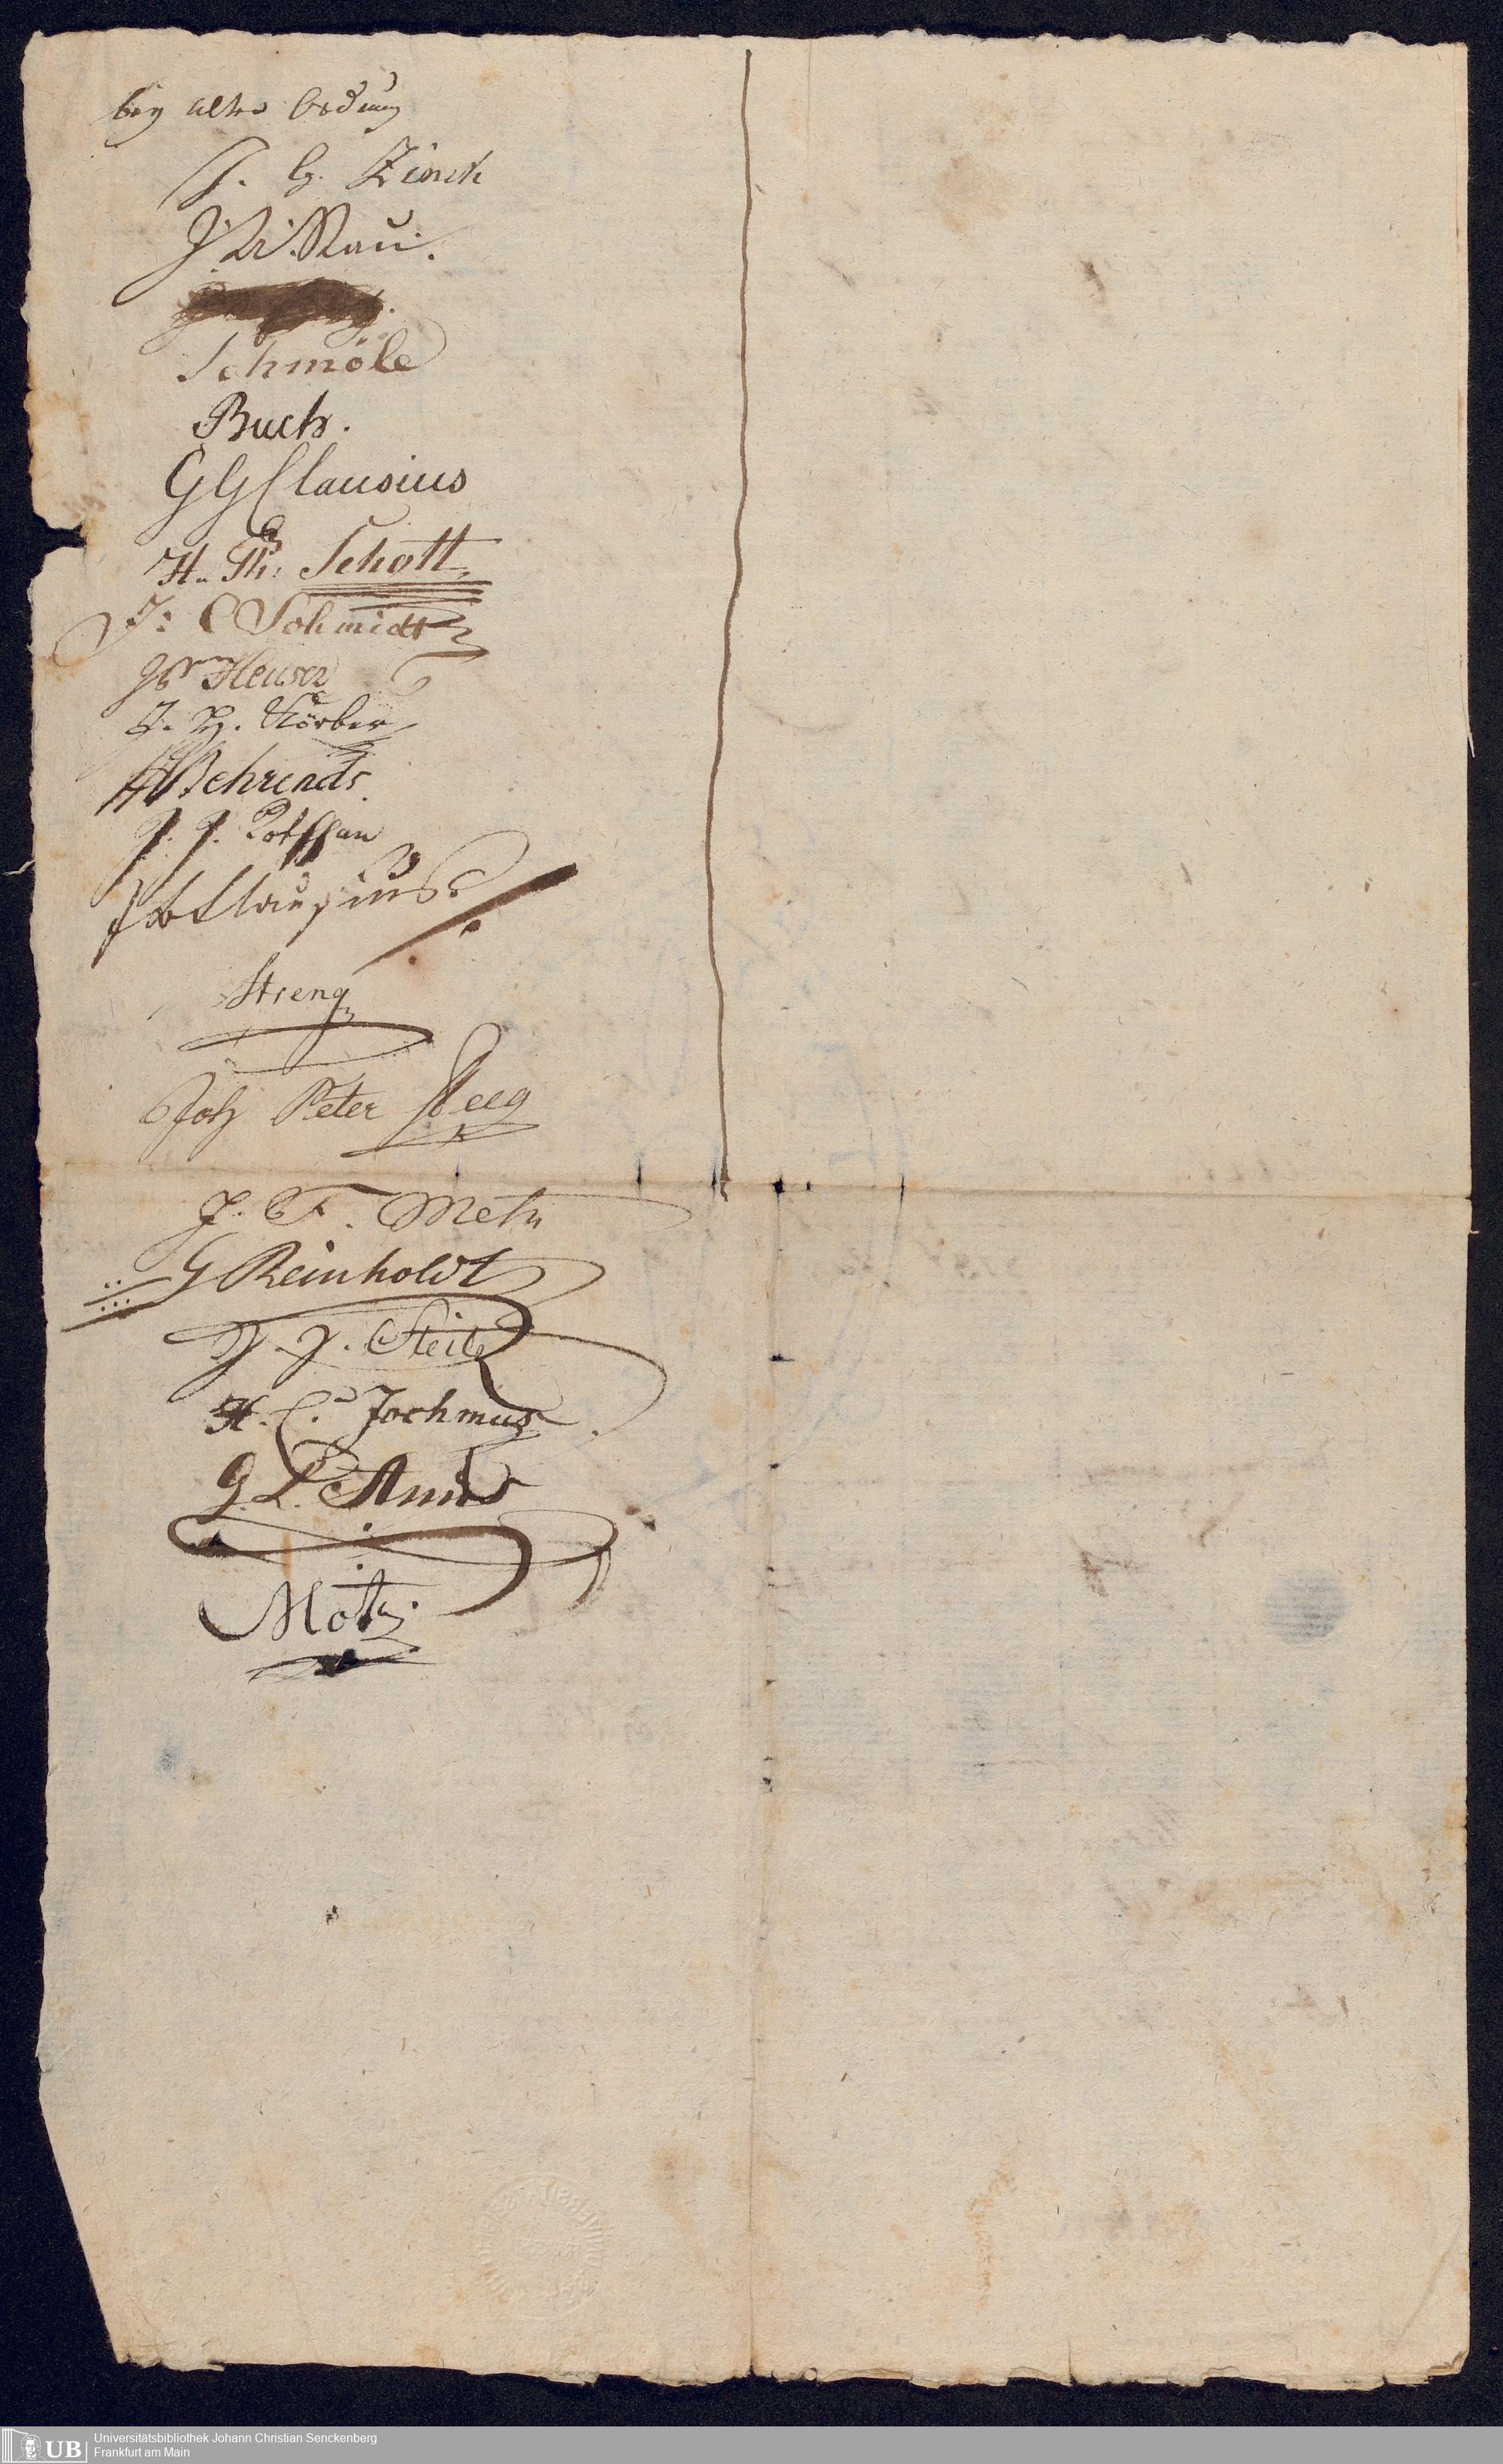 bey alter Ordnung
J. G. Zinck
J. W. Rau.
Schmöle
Buch.
GG Clausius
H. Ph: Schott
J: C Schmidt
Heuser
J. H. Körber
H Behrends.
J. J. Rotshan
Clausius
Streng
Joh Peter Steeg
J. C F. Metz
G Reinholdt
J. J. Steitz
H. C. Jochmus
G. L. Amis
Motz.
UB
Universitätsbibliothek Johann Christian Senckenberg
Frankfurt am Main